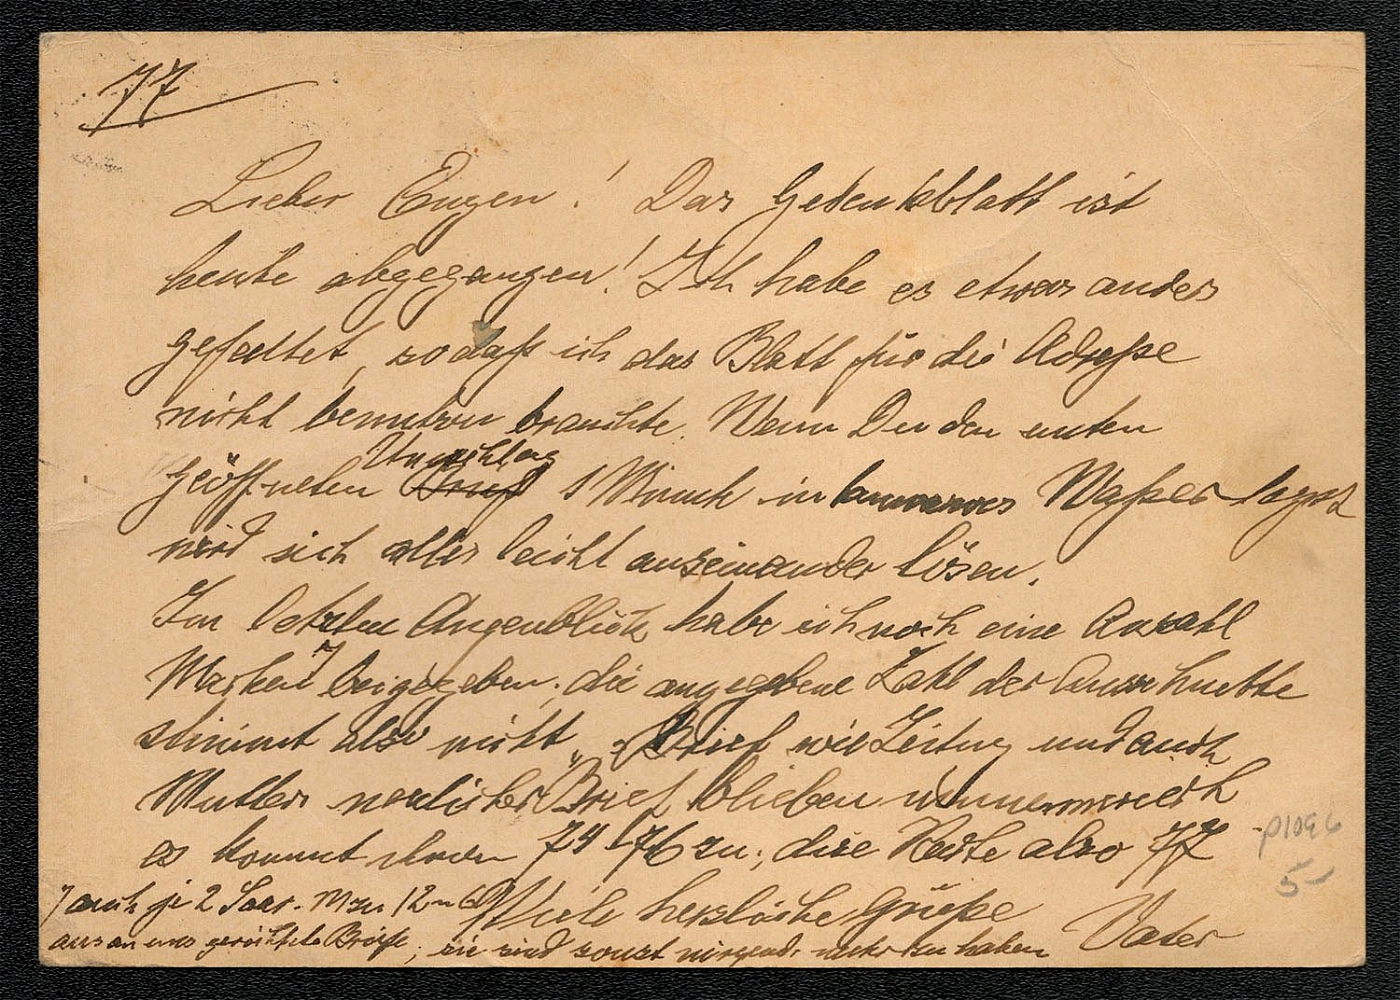 77
Lieber Eugen! Das Gedenkblatt ist
heute abgegangen! Ich habe es etwas anders
gefaltet, so daß ich das Blatt für die Adreße
nicht benutzen brauchte. Wenn Du den unten
Umschlag
geöffneten Brief 1 Minute in Waßer legst
wird sich alles leicht auseinander lösen.
Im letzten Augenblick habe ich noch eine Anzahl
Marken beigegeben, die angegebene Zahl der
stimmt also nicht. Brief wie Zeitung und auch
Mutters Brief blieben
es kommt 74 76 zu, diese Karte also 77
Viele herzliche Grüße Vater
auch je 2 Saar. M zu 12
aus an uns gerichtete Briefe, sie sind sonst nirgends mehr zu haben
p1096
5-